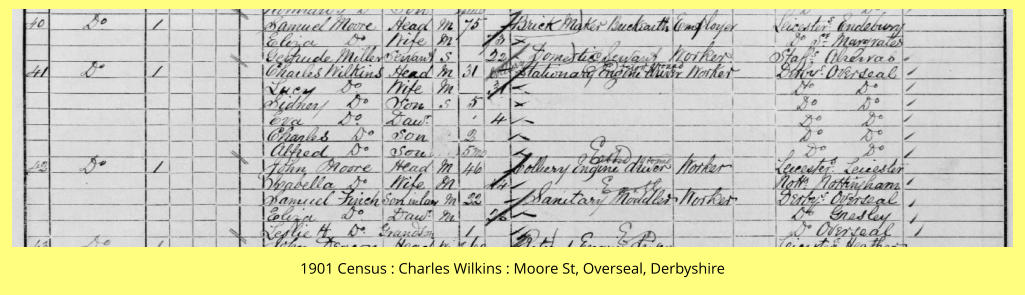 40 Do 1 Samuel Moore Head M 75 Brick Maker Employer Leicester
Eliza Do Wife M Do St Margrates
Gertrude Miller Servant S 22 Domestic Servant Worker Staffs
41 Do 1 Charles Wilkins Head M 31 Stationary Engine Driver Worker Derbys Overseal
Lucy Do Wife M 31 Do Do
Sidney Do Son S 5 Do Do
Eva Do Daur 4 Do Do
Charles Do Son 2 Do Do
Alfred Do Son 5m Do Do
42 Do 1 John Moore Head M 46 Colliery Engine driver Worker Leicester Leicester
Isabella Do Wife M 44 Notts Nottingham
Samuel Finch Son in law M 22 Sanitary Moddler Worker Derbys Overseal
Eliza Do Daur M Do Gresley
Leslie H. Do Grandson 1 Do Overseal
43 Do 1 John Head M
1901 Census : Charles Wilkins : Moore St, Overseal, Derbyshire